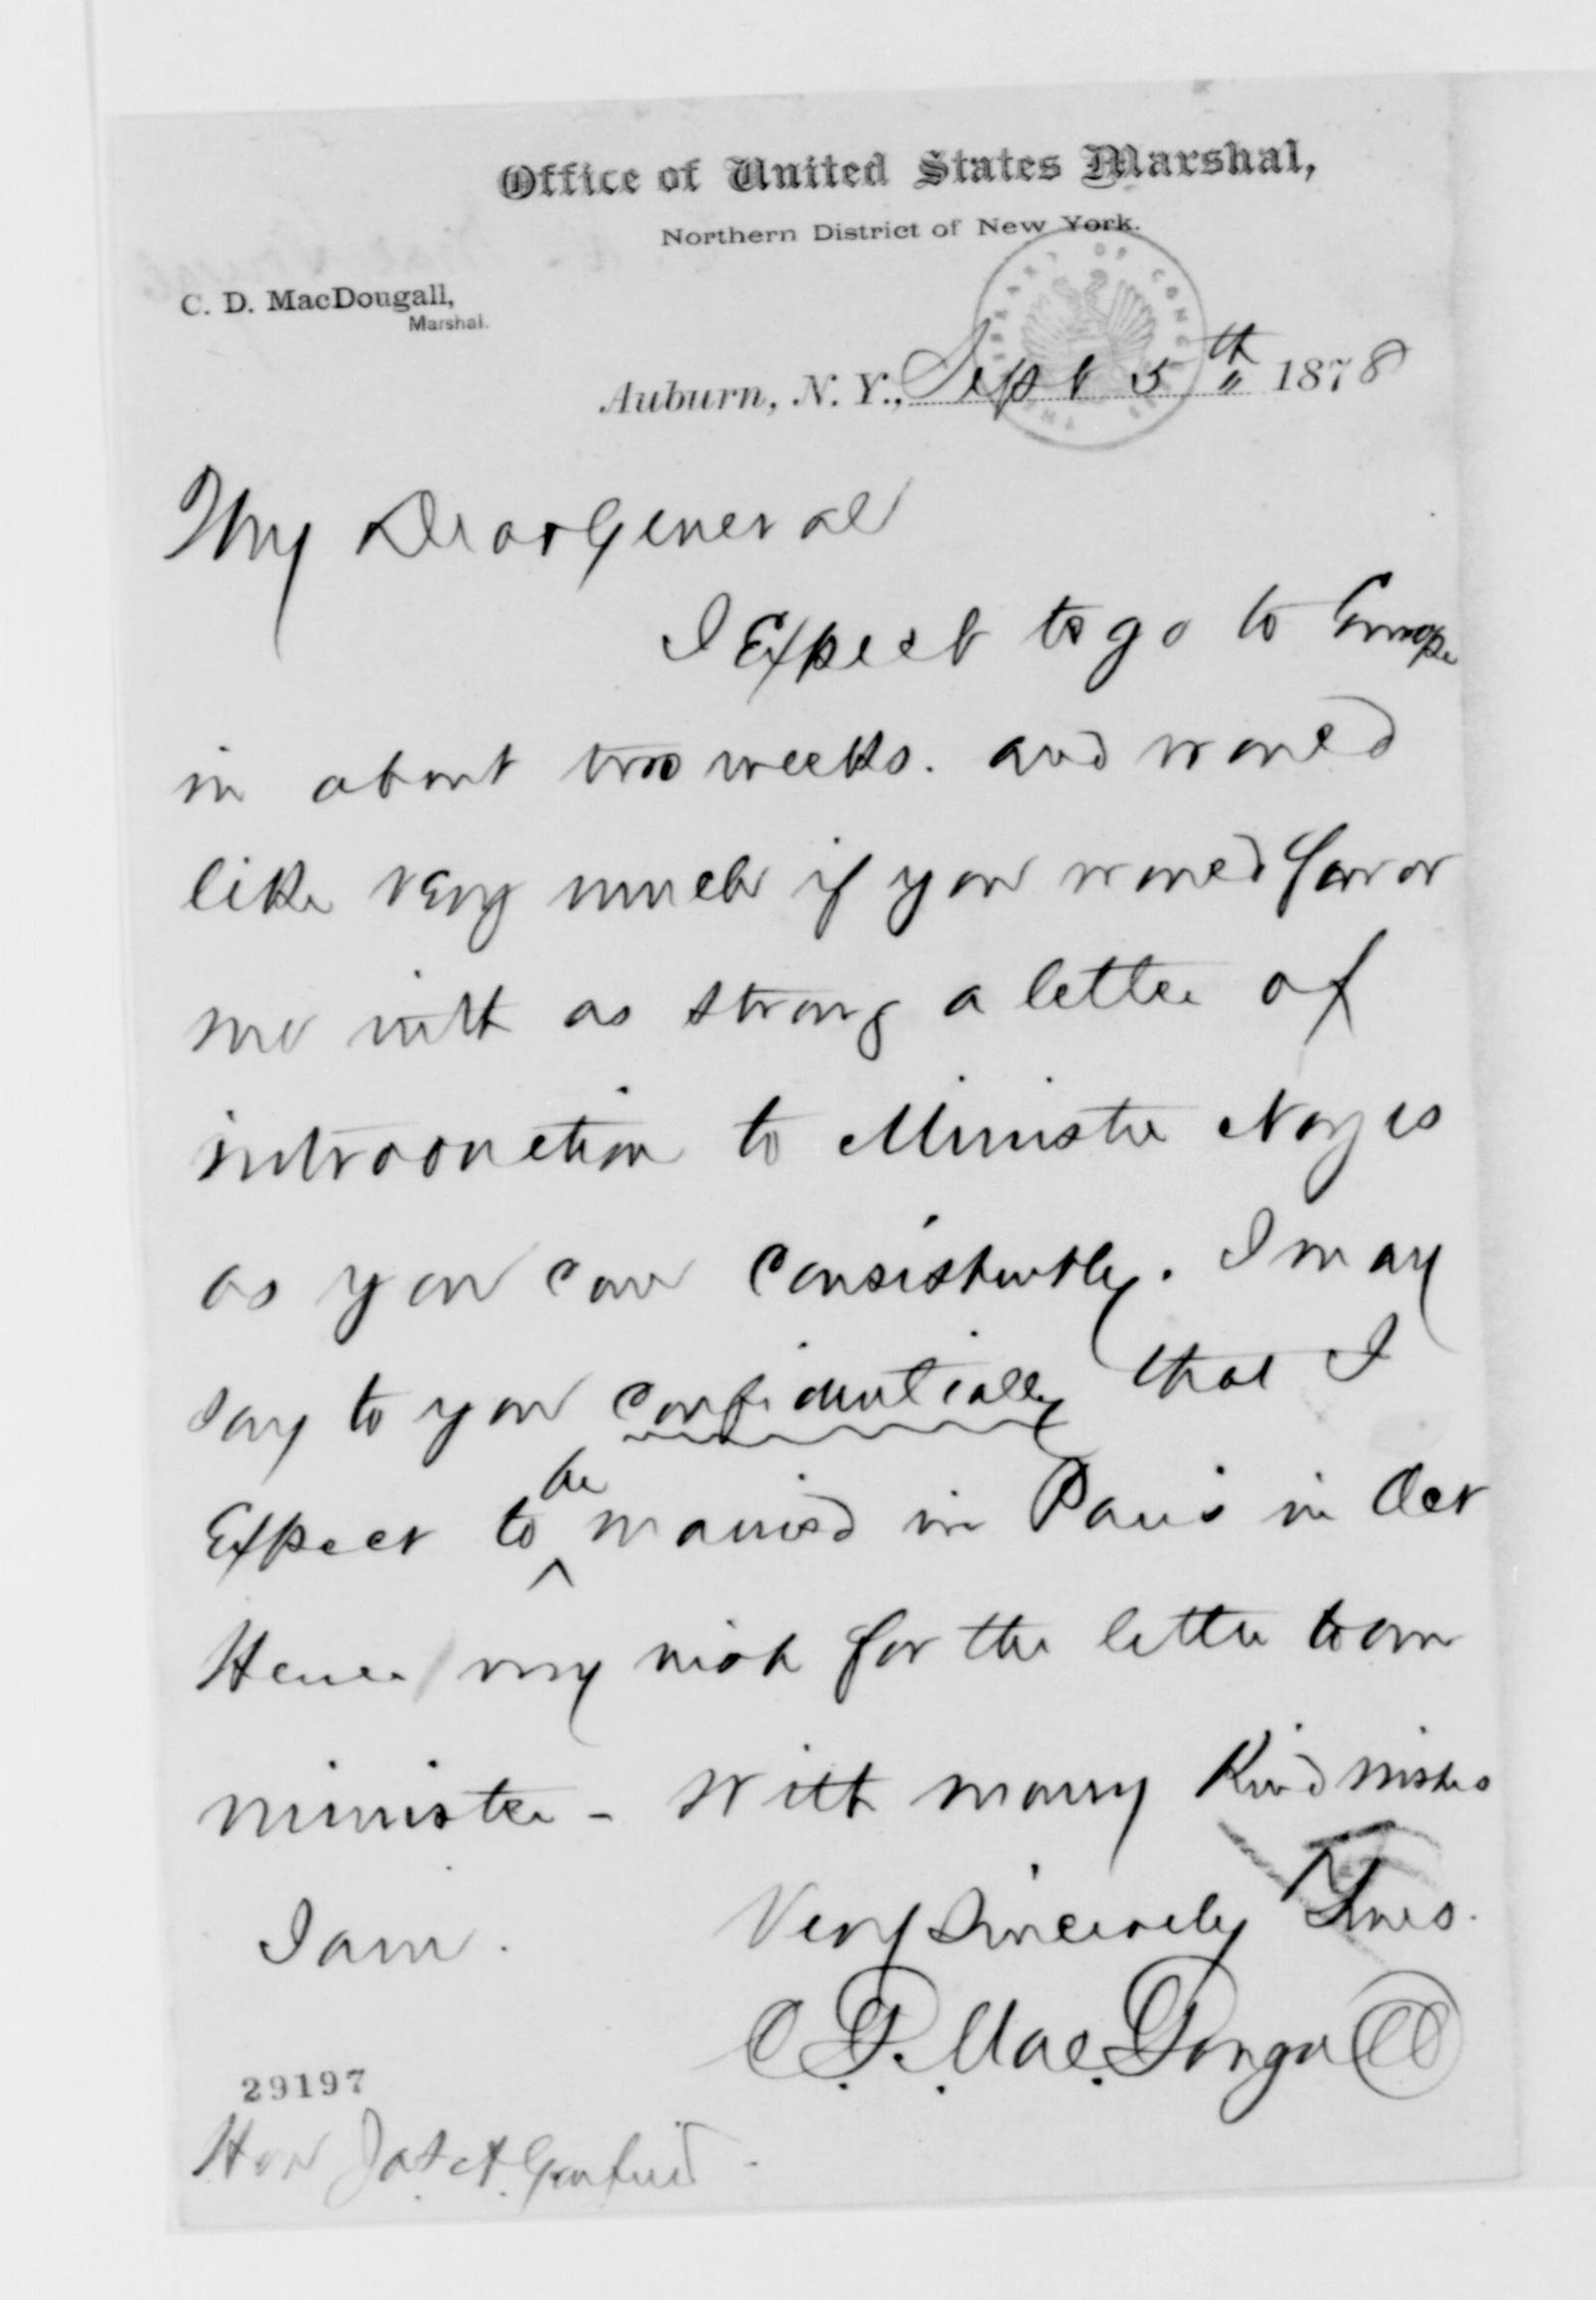 Office of United States Marshal,
Northern District of New York.
C. D. MacDougall,
Marshal.
THE LIBRARY OF CONGRESS
Auburn, N. Y., Sept 5th 1878
My Dear General
I Expect to go to Europe
in about two weeks. and would
like very much if you would favor
me with as strong a letter of
introduction to Minister Noyes
as you can consistently. I may
say to you confidentially that I
Expect to be married in Paris in Oct
Hence my wish for the letter to our
minister - With many Kind wishes
I am. Very Sincerely Yours.
C. D. MacDougall
29197
Hon Jas. A. Garfield